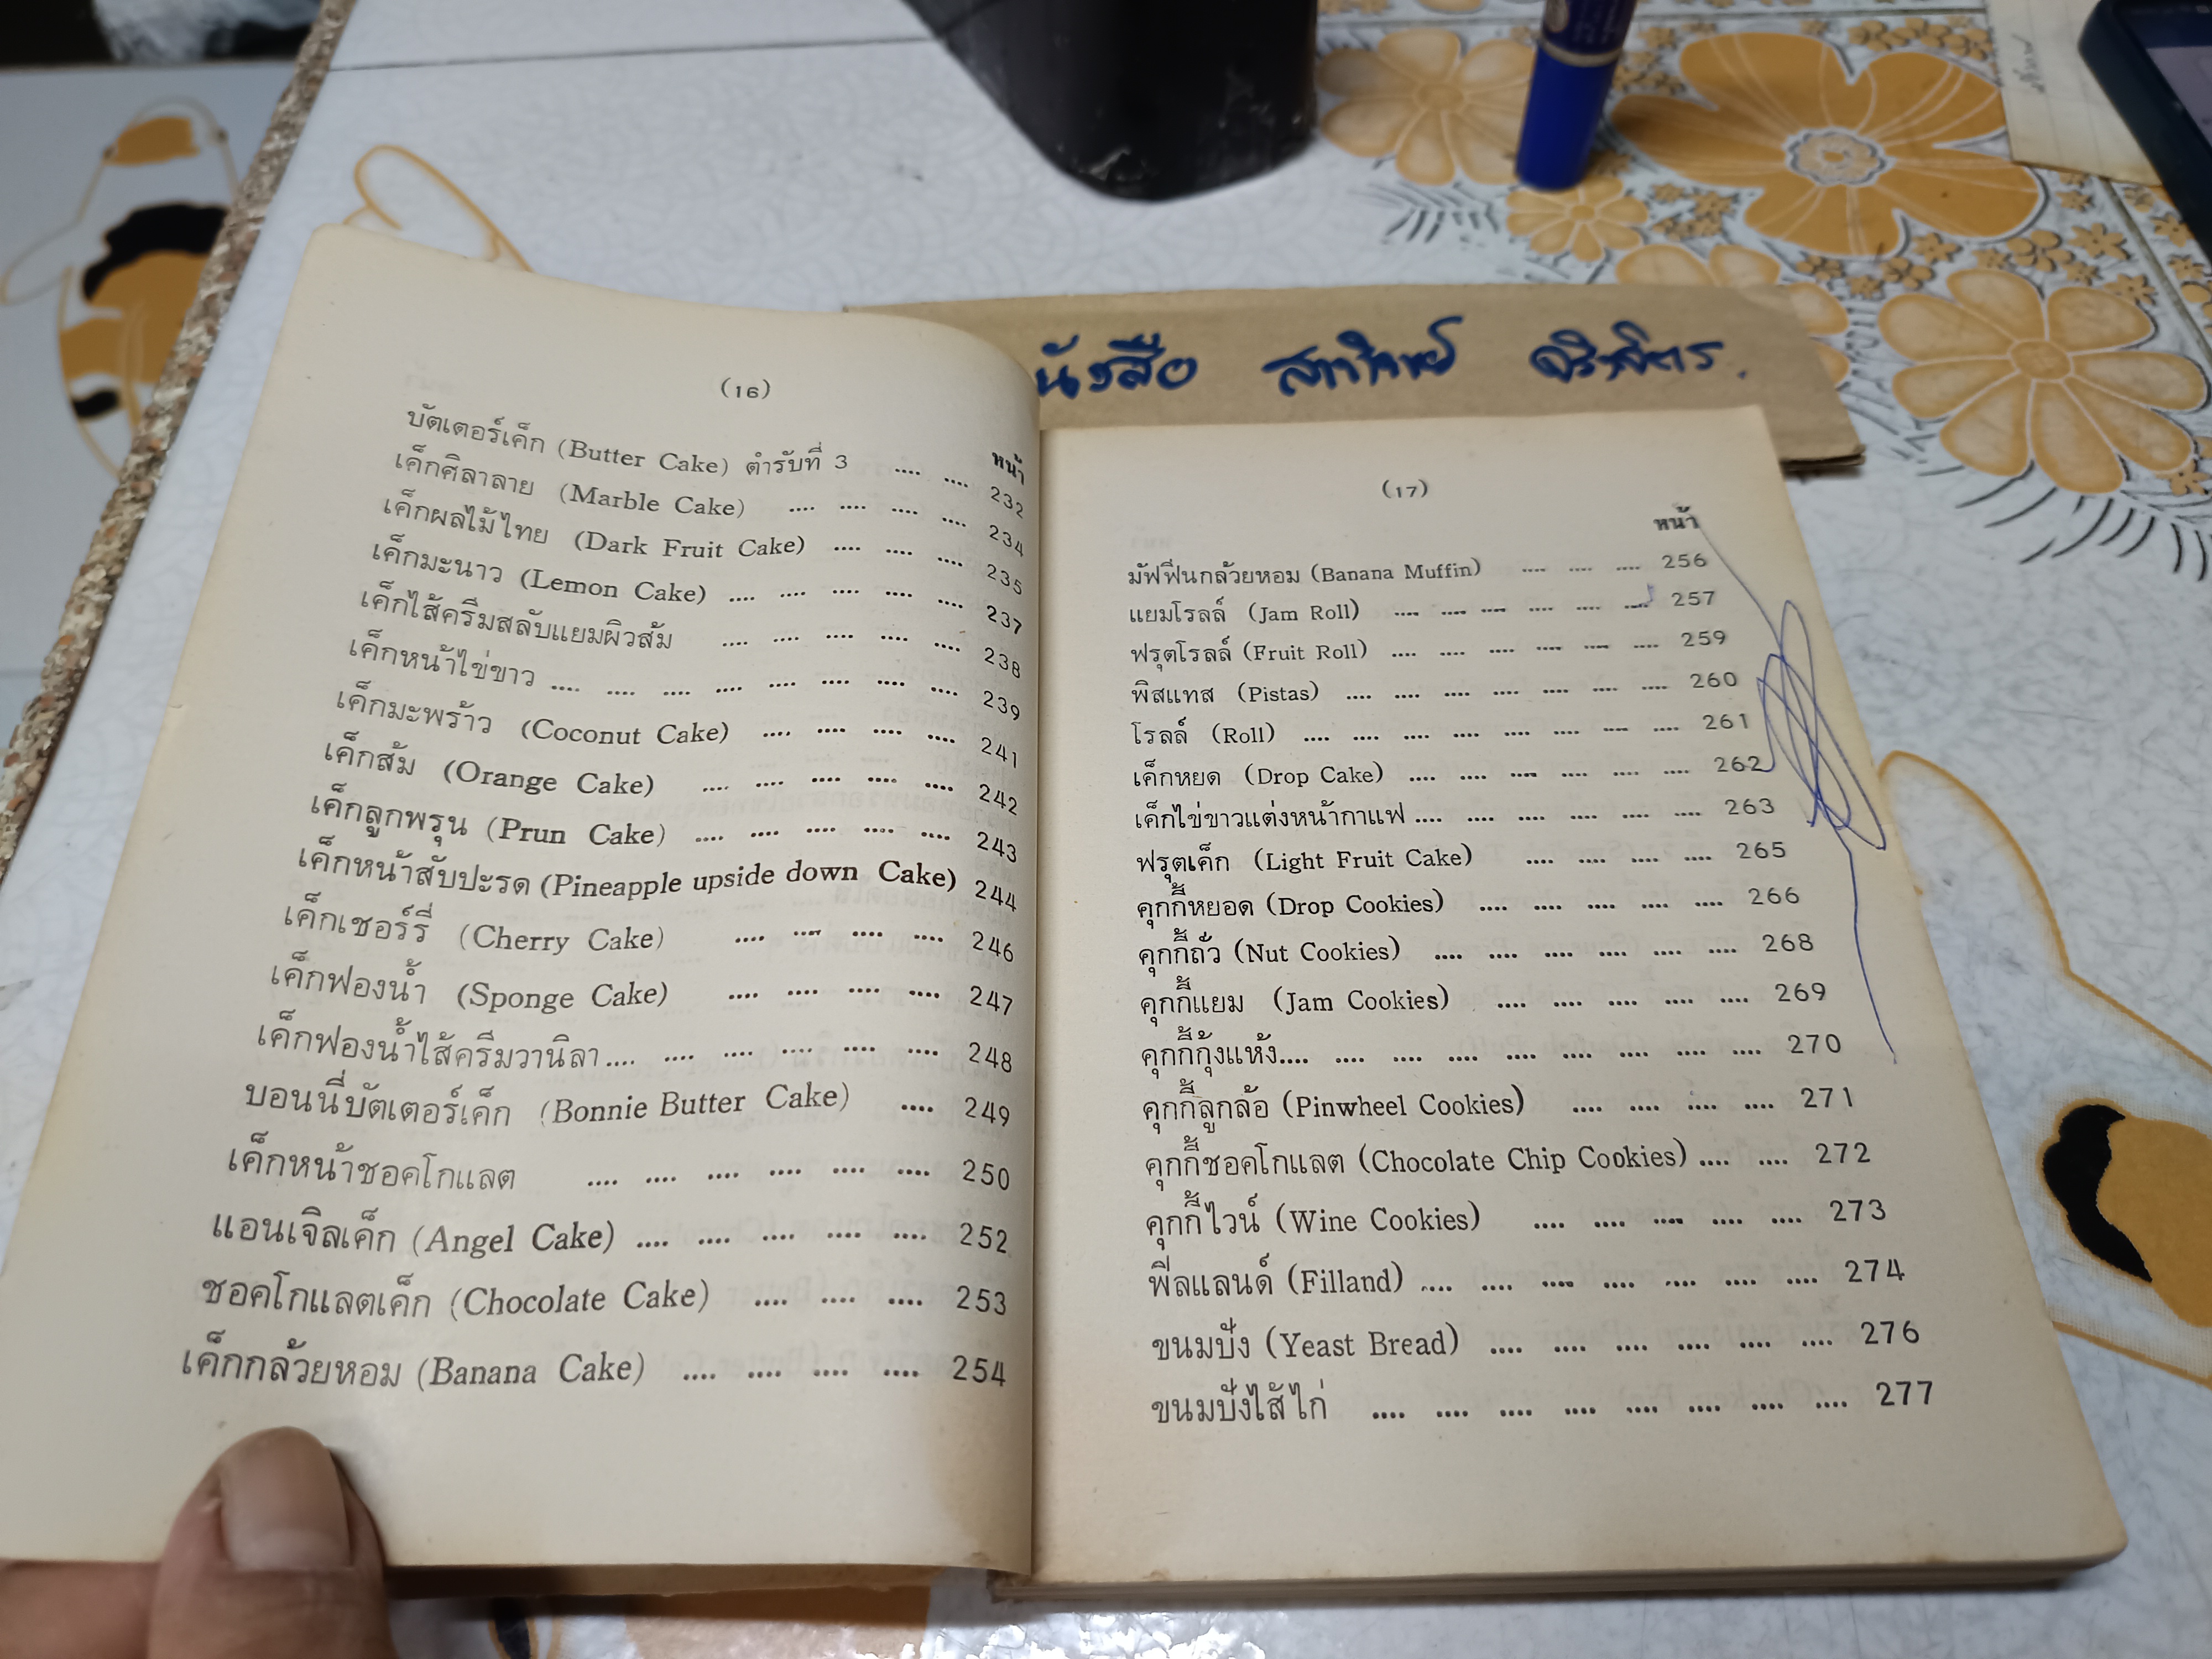 หนังสือ
(16)
หน้า
บัตเตอร์เค็ก (Butter Cake) ตำรับที่ 3 .... .... 232
เค็กศิลาลาย (Marble Cake) .... .... .... .... 234
เค็กผลไม้ไทย (Dark Fruit Cake) .... .... .... 235
เค็กมะนาว (Lemon Cake) .... .... .... .... .... 237
เค็กไส้ครีมสลับแยมผิวส้ม .... .... .... .... .... 238
เค็กหน้าไข่ขาว .... .... .... .... .... .... .... .... 239
เค็กมะพร้าว (Coconut Cake) .... .... .... .... 241
เค็กส้ม (Orange Cake) .... .... .... .... .... 242
เค็กลูกพรุน (Prun Cake) .... .... .... .... .... 243
เค็กหน้าสับปะรด (Pineapple upside down Cake) 244
เค็กเชอร์รี่ (Cherry Cake) .... .... .... .... 246
เค็กฟองน้ำ (Sponge Cake) .... .... .... .... 247
เค็กฟองน้ำไส้ครีมวานิลา .... .... .... .... .... .... 248
บอนนี่บัตเตอร์เค็ก (Bonnie Butter Cake) .... 249
เค็กหน้าชอคโกแลต .... .... .... .... .... .... 250
แอนเจิลเค็ก (Angel Cake) .... .... .... .... .... 252
ชอคโกแลตเค็ก (Chocolate Cake) .... .... .... 253
เค็กกล้วยหอม (Banana Cake) .... .... .... .... 254
(17)
หน้า
มัฟฟีนกล้วยหอม (Banana Muffin) .... .... .... 256
แยมโรลล์ (Jam Roll) .... .... .... .... .... .... 257
ฟรุตโรลล์ (Fruit Roll) .... .... .... .... .... .... 259
พิสแทส (Pistas) .... .... .... .... .... .... .... 260
โรลล์ (Roll) .... .... .... .... .... .... .... .... 261
เค็กหยด (Drop Cake) .... .... .... .... .... .... 262
เค็กไข่ขาวแต่งหน้ากาแฟ .... .... .... .... .... .... 263
ฟรุตเค็ก (Light Fruit Cake) .... .... .... .... 265
คุกกี้หยอด (Drop Cookies) .... .... .... .... .... 266
คุกกี้ถั่ว (Nut Cookies) .... .... .... .... .... .... 268
คุกกี้แยม (Jam Cookies) .... .... .... .... .... 269
คุกกี้กุ้งแห้ง .... .... .... .... .... .... .... .... .... 270
คุกกี้ลูกล้อ (Pinwheel Cookies) .... .... .... .... 271
คุกกี้ชอคโกแลต (Chocolate Chip Cookies) .... .... 272
คุกกี้ไวน์ (Wine Cookies) .... .... .... .... .... 273
ฟีลแลนด์ (Filland) .... .... .... .... .... .... .... 274
ขนมปัง (Yeast Bread) .... .... .... .... .... .... 276
ขนมปังไส้ไก่ .... .... .... .... .... .... .... .... 277